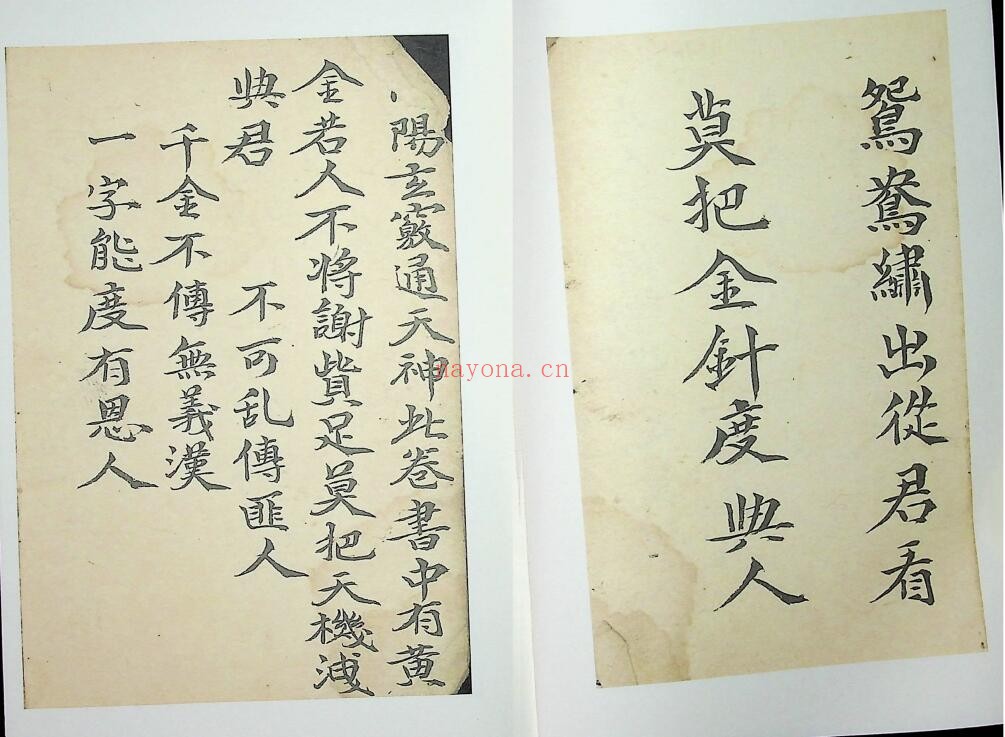 鴛鴦繡出從君看
莫把金針度 與人
陽玄竅通天神此卷書中有黃
金若人不將謝貲足莫把天機洩
與君 不可乱傳匪人
千金不傳無義漢
一字能度有恩人
nayona.cn